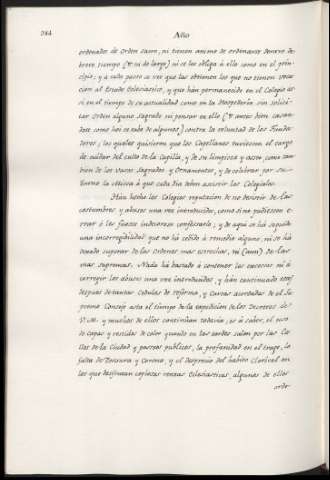 284
Año
ordenados de Orden Sacro, ni tienen animo de ordenarse dentro de
breve tiempo (ni de largo) ni se les obliga á ello como en el prin-
cipio; y á cada paso se ven que las obtienen los que no tienen voca-
cion al Estado Eclesiastico, y que han permanecido en el Colegio asi
si en el tiempo de su actualidad como en la Hospederia sin solici-
tar Orden alguno Sagrado ni pensar en ello (antes bien casan-
dose como hai exemplo de algunos) contra la voluntad de los Funda-
dores; los quales quisieron que los Capellanes tuviesen el cargo
de cuidar del culto de la Capilla, y de su limpieza y aseo como tam-
bien de los Vasos Sagrados y Ornamentos, y de celebrar por su
turno la Misa á que cada dia deben asistir los Colegiales.
Han hecho los Colegios reputacion de no desistir de las
costumbres y abusos una vez introducidos, como si no pudiesen e-
rrar ó les fuese indecoroso confesarlo; y de aqui se há seguido
una incorregibilidad que no há cedido á remedio alguno, ni se há
dexado superar de las Ordenes mas estrechas, ni (aun) de las
mas supremas. Nada há bastado á contener los excesos ni á
corregir los abusos una vez introducidos, y han continuado aun
despues de tantas Cedulas de reforma, y Cartas acordadas de el Su-
premo Consejo asta el tiempo de la expedicion de los Decretos de
V. M. y muchos de ellos continuan todavia, es á saber, el uso
de capas y vestidos de color quando en las tardes salen por las Ca-
lles de la Ciudad y paseos publicos, la profanidad en el trage, la
falta de Tonsura y Corona, y el desprecio del habito Clerical en
los que disfrutan copiosas rentas Eclesiasticas, algunos de ellos
orde